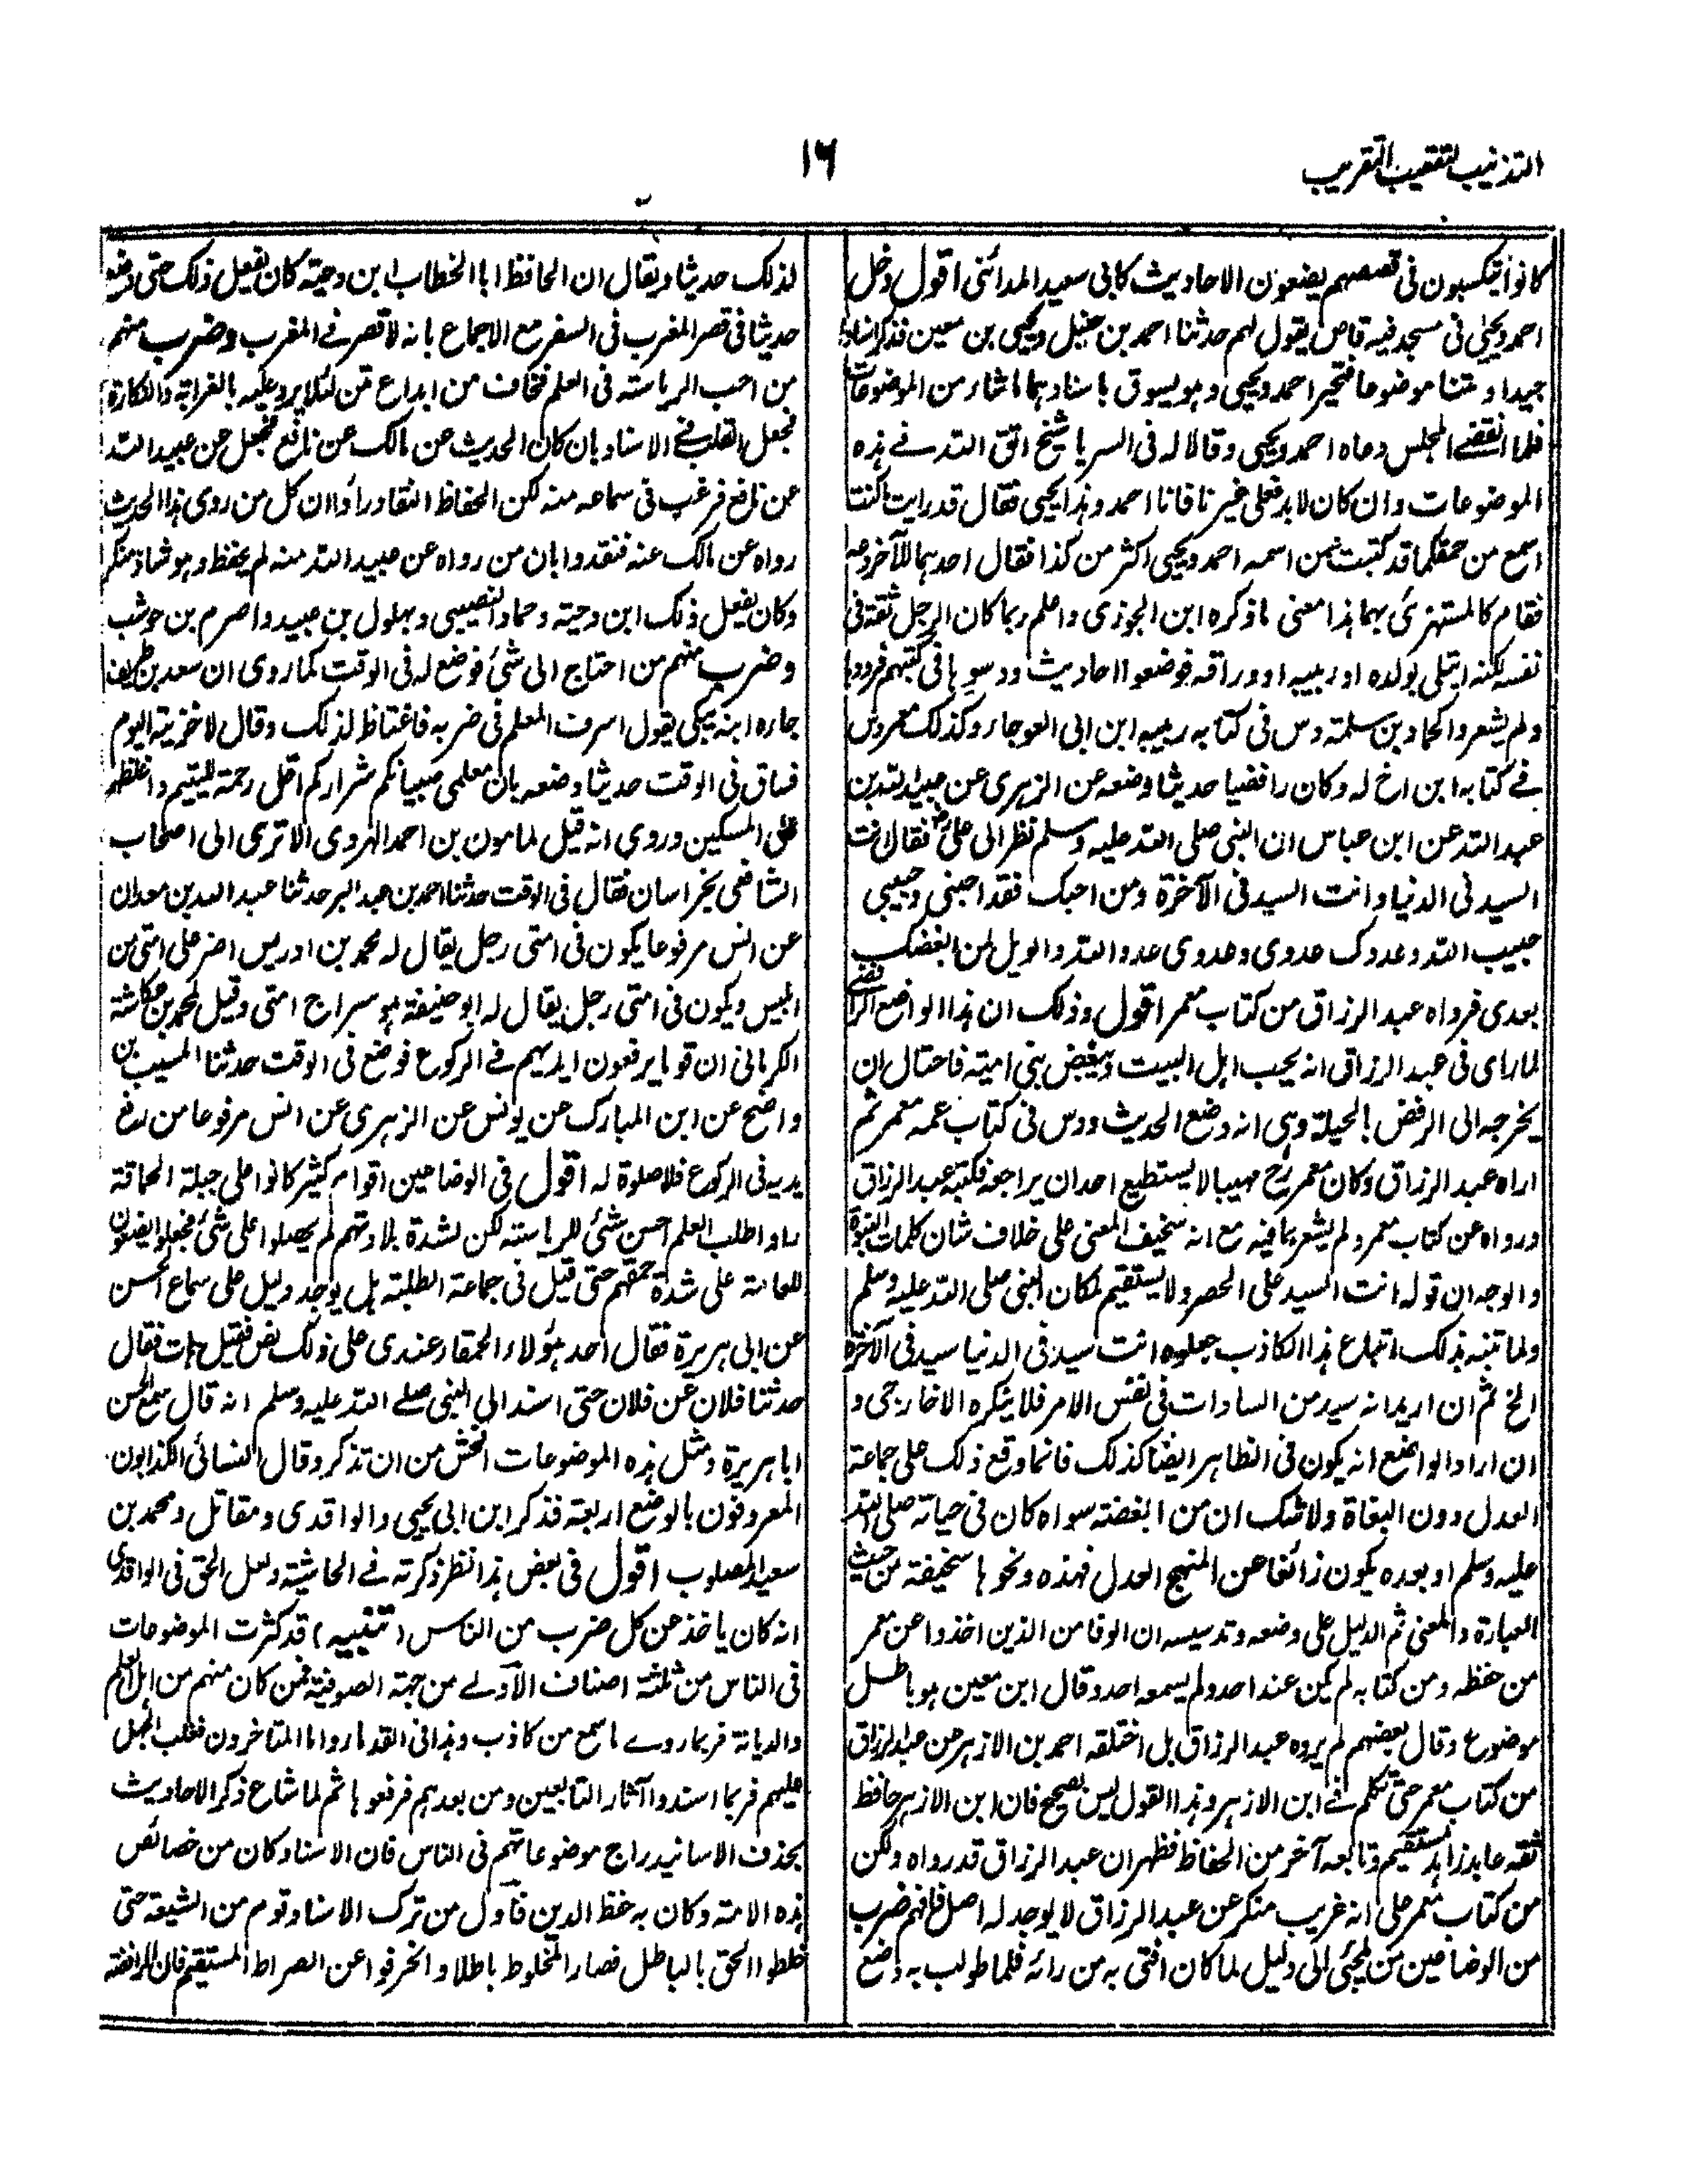 التذنيب لتعقيب التقريب
١٦
كانوا يتكسبون فى قصصهم يضعون الاحاديث كابى سعيد المدائنى اقول دخل
احمد ويحيى فى مسجد فيه قاص يقول لهم حدثنا احمد بن حنبل ويحيى بن معين فذكر اسنادا
جيدا ومتنا موضوعا فتحير احمد ويحيى وهو يسوق باسنادهما ما شاء من الموضوعات
فلما انقضے المجلس دعاه احمد ويحيى وقالا له فى السر يا شيخ اتق الله فے هذه
الموضوعات وان كان لا بد فعلى غيرنا فانا احمد وهذا يحيى فقال قد رايت كنت
اسمع من حمقكما قد كتبت عمن اسمه احمد ويحيى اكثر من كذا فقال احدهما للآخر دعه
فقام كالمستهزئ بهما هذا معنى ما ذكره ابن الجوزى واعلم ربما كان الرجل ثقة فى
نفسه لكنه ابتلى بولده او ربيبه او وراقه فوضعوا احاديث ودسوها فى كتبهم فرووها
ولم يشعروا كحماد بن سلمة دس فى كتابه ربيبه ابن ابى العوجاء وكذلك معمر دس
فے كتابه ابن اخ له وكان رافضيا حديثا وضعه عن الزهرى عن عبيد الله بن
عبد الله عن ابن عباس ان النبى صلى الله عليه وسلم نظر الى على رض فقال انت
السيد فى الدنيا وانت السيد فى الآخرة ومن احبك فقد احبنى وحبيبى
حبيب الله وعدوك عدوى وعدوى عدو الله والويل لمن ابغضك
بعدى فرواه عبد الرزاق من كتاب معمر اقول وذلك ان هذا الواضع الرافضے
لما راى فى عبد الرزاق انه يحب اهل البيت ويبغض بنى امية فاحتال ان
يخرجه الى الرفض بالحيلة وهى انه وضع الحديث ودس فى كتاب عمه معمر ثم
اراه عبد الرزاق وكان معمر رح مهيبا لا يستطيع احد ان يراجعه فكتبه عبد الرزاق
ورواه عن كتاب معمر ولم يشعر بما فيه مع انه سخيف المعنى على خلاف شان كلمات النبوة
والوجه ان قوله انت السيد على الحصر ولا يستقيم لمكان النبى صلى الله عليه وسلم
ولما تنبه بذلك اتباع هذا الكاذب جعلوه انت سيد فى الدنيا سيد فى الآخرة
الخ ثم ان اريد انه سيد من السادات فى نفس الامر فلا ينكره الا خارجى و
ان اراد الواضع انه يكون فى الظاهر ايضا كذلك فانما وقع ذلك على جماعة
العدل دون البغاة ولا شك ان من ابغضه سواه كان فى حياته صلى الله
عليه وسلم او بعده يكون زائغا عن المنهج العدل فهذه ونحوها سخيفة من حيث
العبارة والمعنى ثم الدليل على وضعه وتدسيسه ان الوفا من الذين اخذوا عن معمر
من حفظه ومن كتابه لم يكن عند احد ولم يسمعه احد وقال ابن معين هو باطل
موضوع وقال بعضهم لم يروه عبد الرزاق بل اختلقه احمد بن الازهر عن عبد الرزاق
من كتاب معمر حتى تكلم فے ابن الازهر وهذا القول ليس بصحيح فان ابن الازهر حافظ
ثقه عابد زاهد مستقيم وتابعه آخر من الحفاظ فظهر ان عبد الرزاق قد رواه ولكن
من كتاب معمر على انه غريب منكر عن عبد الرزاق لا يوجد له اصل فافهم ضرب
من الوضاعين من يلجئ الى دليل لما كان افتى به من رائه فلما طولب به وضع
لذلك حديثا ويقال ان الحافظ ابا الخطاب ابن دحية كان يفعل ذلك حتى وضع
حديثا فى قصر المغرب فى السفر مع الاجماع بانه لا قصر فے المغرب وضرب منهم
من احب الرياسته فى العلم فخاف من ابداع متن لئلا يرد عليه بالغرابة والنكارة
فجعل القلب فے الاسناد بان كان الحديث عن مالك عن نافع فجعل عن عبيد الله
عن نافع فرغب فى سماعه منه لكن الحفاظ النقاد راوا ان كل من روى هذا الحديث
رواه عن مالك عنه فنقدوا بان من رواه عن عبيد الله منه لم يحفظ وهو شاذ منكر
وكان يفعل ذلك ابن دحية وحماد النصيبى وبهلول بن عبيد واصرم بن حوشب
وضرب منهم من احتاج الى شئ فوضع له فى الوقت كما روى ان سعد بن طريف
جاءه ابنه يبكى يقول اسرف المعلم فى ضربه فاغتاظ لذلك وقال لاخزينه اليوم
فساق فى الوقت حديثا وضعه بان معلمى صبيانكم شراركم اقل رحمة لليتيم واغلظه
على المسكين وروى انه قيل لمامون بن احمد الهروى الا ترى الى اصحاب
الشافعى بخراسان فقال فى الوقت حدثنا احمد بن عبد البر حدثنا عبد الله بن معدان
عن انس مرفوعا يكون فى امتى رجل يقال له محمد بن ادريس اضر على امتى من
ابليس ويكون فى امتى رجل يقال له ابو حنيفة هو سراج امتى وقيل لمحمد بن عكاشة
الكرمانى ان قوما يرفعون ايديهم فے الركوع فوضع فى الوقت حدثنا المسيب بن
واضح عن ابن المبارك عن يونس عن الزهرى عن انس مرفوعا من رفع
يديه فى الركوع فلا صلوة له اقول فى الوضاعين اقوام كثير كانوا على جبلة الحماقة
راوا طلب العلم احسن شئ للرياسته لكن لشدة بلادتهم لم يحصلوا على شئ فجعلوا يضعون
للعامة على شدة حمقهم حتى قيل فى جماعة الطلبته هل يوجد دليل على سماع الحسن
عن ابى هريرة فقال احد هؤلاء الحمقاء عندى على ذلك نص فقيل هات فقال
حدثنا فلان عن فلان حتى اسند الى النبى صلے الله عليه وسلم انه قال سمع الحسن
ابا هريرة ومثل هذه الموضوعات افحش من ان تذكر وقال النسائى الكذابون
المعروفون بالوضع اربعته فذكر ابن ابى يحيى والواقدى ومقاتل ومحمد بن
سعيد المصلوب اقول فى بعض هذا نظر ذكرته فے الحاشيته ولعل الحق فى الواقدى
انه كان ياخذ عن كل ضرب من الناس (تنبيه) قد كثرت الموضوعات
فى الناس من ثلثة اصناف الآولے من جهة الصوفية فمن كان منهم من اهل العلم
والديانة فربما روے ما سمع من كاذب وهذا فى القدماء واما المتاخرون فغلب الجهل
عليهم فربما اسندوا آثار التابعين ومن بعدهم فرفعوها ثم لما شاع ذكر الاحاديث
بحذف الاسانيد راج موضوعاتهم فى الناس فان الاسناد كان من خصائص
هذه الامته وكان به حفظ الدين فآول من ترك الاسناد قوم من الشيعته حتى
خلطوا الحق بالباطل فصار المخلوط باطلا وانحرفوا عن الصراط المستقيم فان الرافضة